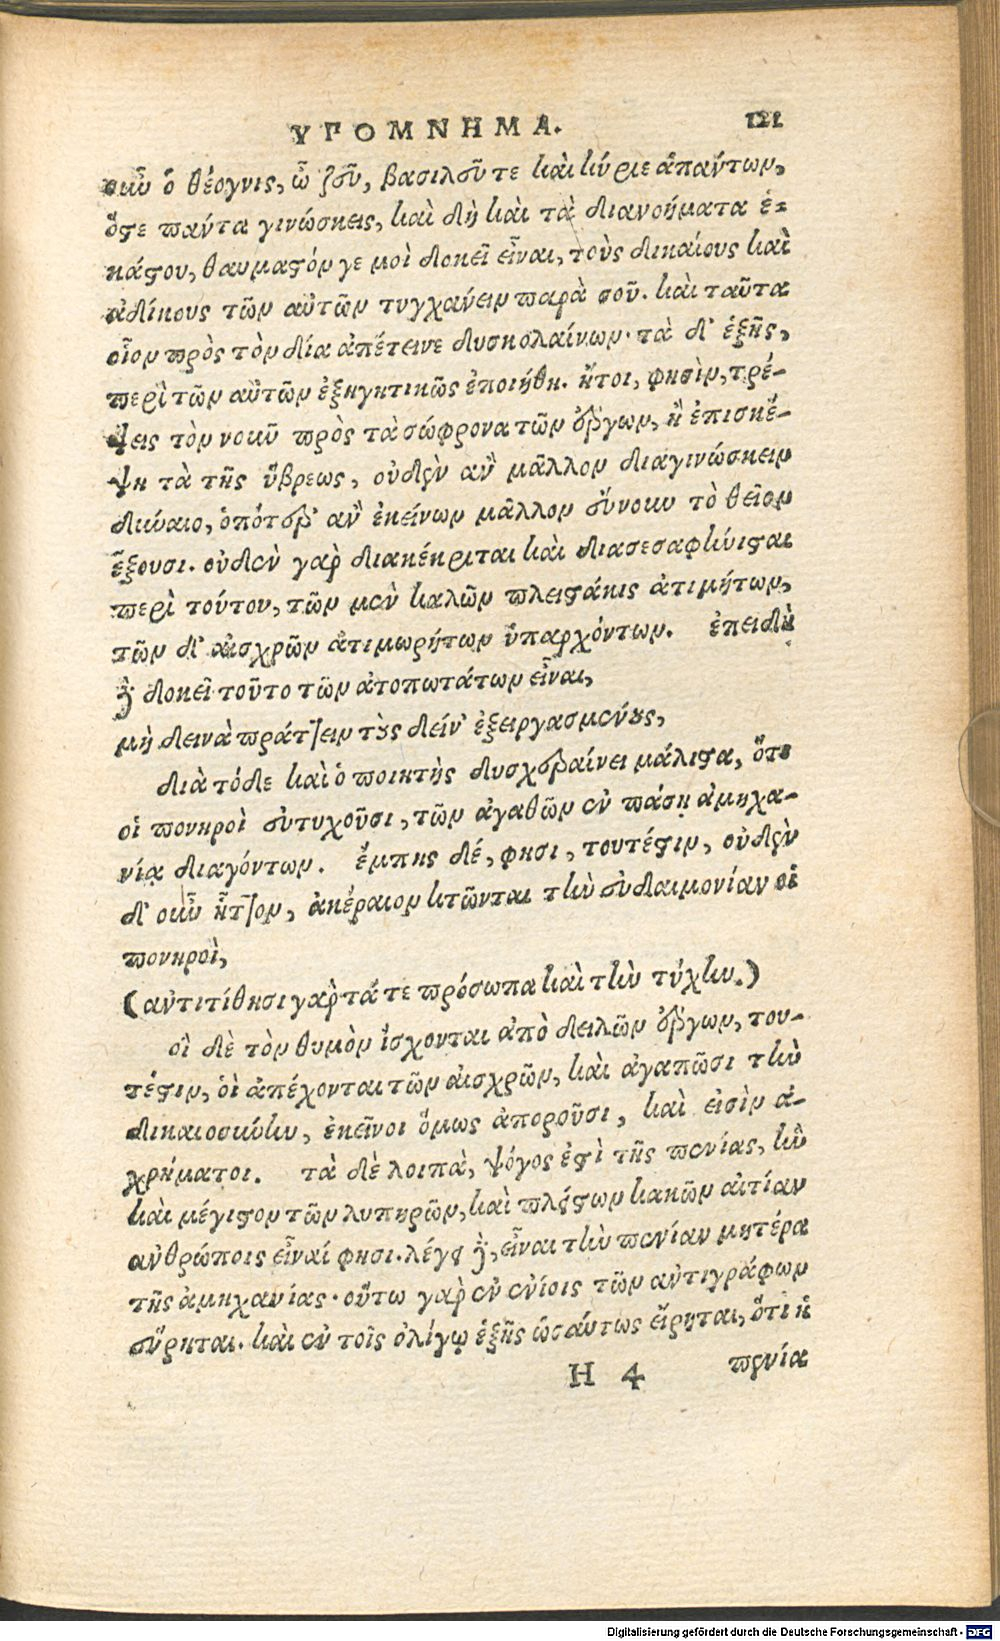 ΥΠΟΜΝΗΜΑ. 121
οὖν ὁ θέογνις, ὦ ζεῦ, βασιλεῦ τε καὶ κύριε ἁπάντων,
ὅστε παντα γινώσκεις, καὶ δὴ καὶ τὰ διανοήματα ἑ-
κάστου, θαυμαστόν γε μοὶ δοκεῖ εἶναι, τοὺς δικαίους καὶ
ἀδίκους τῶν αὐτῶν τυγχανειν παρὰ σοῦ. καὶ ταῦτα
οἷον πρὸς τὸν δία ἀπέτεινε δυσκολαίνων· τὰ δ' ἑξῆς,
περὶ τῶν αὐτῶν ἐξηγητικῶς ἐποιήθη. ἤτοι, φησὶν, τρέ-
ψεις τὸν νοῦν πρὸς τὰ σώφρονα τῶν ἔργων, ἢ ἐπισκέ-
ψη τὰ τῆς ὕβρεως, οὐδὲν ἂν μᾶλλον διαγινώσκειν
δύναιο, ὁπότερ' ἂν ἐκείνων μᾶλλον εὔνουν τὸ θεῖον
ἕξουσι. οὐδὲν γὰρ διακέκριται καὶ διασεσαφήνισται
περὶ τούτου, τῶν μὲν καλῶν πλειστάκις ἀτιμήτων,
τῶν δ' αἰσχρῶν ἀτιμωρήτων ὑπαρχόντων. ἐπειδὴ
γὰρ δοκεῖ τοῦτο τῶν ἀτοπωτάτων εἶναι,
μὴ δεινὰ πράττειν τοὺς δείν' ἐξειργασμένους,
διὰ τόδε καὶ ὁ ποιητὴς δυσχεραίνει μάλιστα, ὅτι
οἱ πονηροὶ εὐτυχοῦσι, τῶν ἀγαθῶν ἐν πάσῃ ἀμηχα-
νίᾳ διαγόντων. ἔμπης δέ, φησι, τουτέστιν, οὐδὲν
δ' οὖν ἧττον, ἀκέραιον κτῶνται τὴν εὐδαιμονίαν οἱ
πονηροὶ,
(ἀντιτίθησι γὰρ τά τε πρόσωπα καὶ τὴν τύχην.)
οἱ δὲ τὸν θυμὸν ἴσχονται ἀπὸ δειλῶν ἔργων, του-
τέστιν, ὁὶ ἀπέχονται τῶν αἰσχρῶν, καὶ ἀγαπῶσι τὴν
δικαιοσύνην, ἐκεῖνοι ὅμως ἀποροῦσι, καὶ εἰσὶν ἀ-
χρήματοι. τὰ δὲ λοιπὰ, ψόγος ἐστὶ τῆς πενίας, ἣν
καὶ μέγιστον τῶν λυπηρῶν, καὶ πλείστων κακῶν αἰτίαν
ἀνθρώποις εἶναί φησι. λέγει γὰρ, εἶναι τὴν πενίαν μητέρα
τῆς ἀμηχανίας· οὕτω γαρ ἐν ἐνίοις τῶν ἀντιγράφων
εὕρηται. καὶ ἐν τοῖς ὀλίγῳ ἑξῆς ὡσάυτως εἴρηται, ὅτι ἡ
H 4 πενία
Digitalisierung gefördert durch die Deutsche Forschungsgemeinschaft - DFG